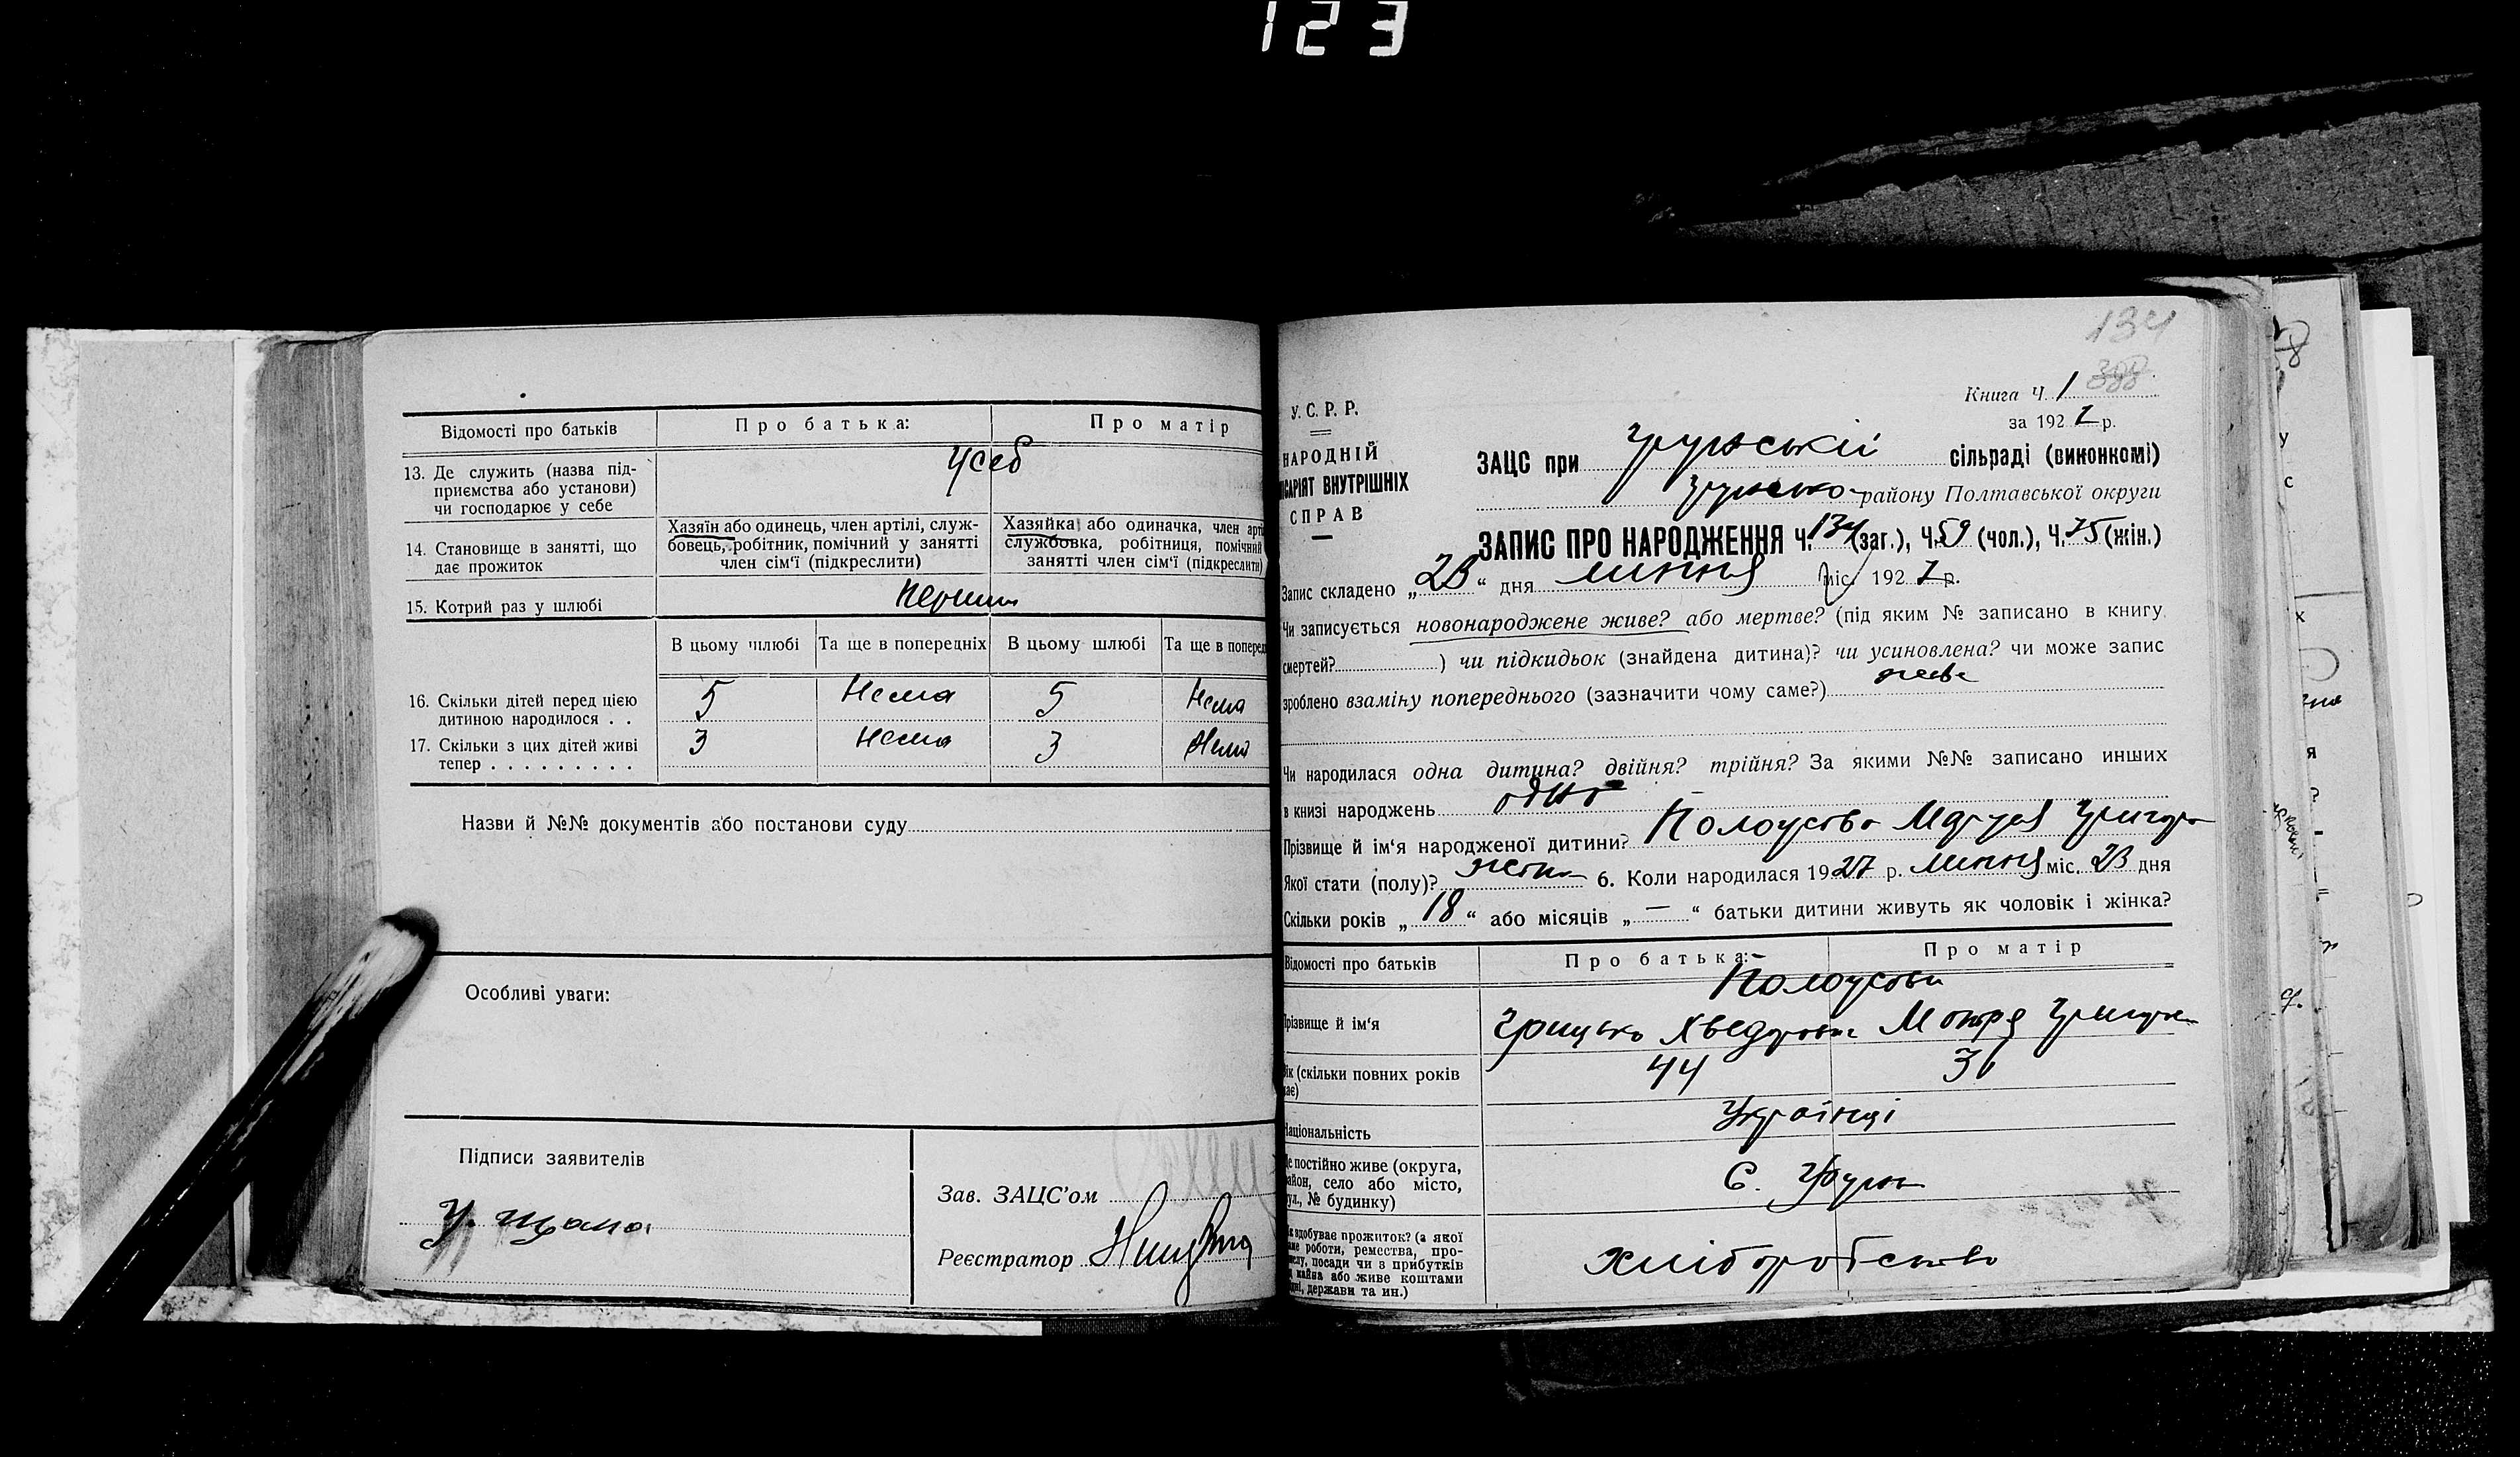 123
Відомості про батьків
Про батька:
Про матір
13. Де служить (назва під-
приємства або установи)
чи господарює у себе
усеб
14. Становище в занятті, що
дає прожиток
Хазяїн або одинець, член артілі, служ-
бовець, робітник, помічний у занятті
член сім'ї (підкреслити)
Хазяйка або одиначка, член арті
службовка, робітниця, помічний
занятті член сім'ї (підкреслити)
15. Котрий раз у шлюбі
В цьому шлюбі
Та ще в попередніх
В цьому шлюбі
Та ще в поперед
16. Скільки дітей перед цією
дитиною народилося . .
5 Нема 5 Нема
17. Скільки з цих дітей живі
тепер . . . . . . . . .
3 Нема 3 Нема
Назви й №№ документів або постанови суду
Особливі уваги:
Підписи заявителів
Зав. ЗАЦС'ом
Реєстратор
134
388
Книга Ч. 1
за 1927 р.
У. С. Р. Р.
НАРОДНІЙ
ІСАРІЯТ ВНУТРІШНІХ
СПРАВ
ЗАЦС при Грунській сільраді (виконкомі)
Грунсько району Полтавської округи
ЗАПИС ПРО НАРОДЖЕННЯ Ч. 134 (заг.), Ч. 59 (чол.), Ч. 75 (жін.)
Запис складено „23" дня липня міс. 1927 р.
Чи записується новонароджене живе? або мертве? (під яким № записано в книгу
смертей? ) чи підкидьок (знайдена дитина)? чи усиновлена? чи може запис
зроблено взаміну попереднього (зазначити чому саме?) живе
Чи народилася одна дитина? двійня? трійня? За якими №№ записано инших
в книзі народжень одна
Прізвище й ім'я народженої дитини?
Якої стати (полу)? 6. Коли народилася 1927 р. липня міс. 23 дня
Скільки років „18" або місяців „—" батьки дитини живуть як чоловік і жінка?
Відомості про батьків
Про батька:
Про матір
Прізвище й ім'я
Грицько Хведорович
44
36
Вік (скільки повних років
має)
Національність
Українці
Де постійно живе (округа,
район, село або місто,
вул., № будинку)
С. Грунь
Як здобуває прожиток? (з якої
саме роботи, ремества, про-
мислу, посади чи з прибутків
з майна або живе коштами
рідні, держави та ин.)
хліборобство